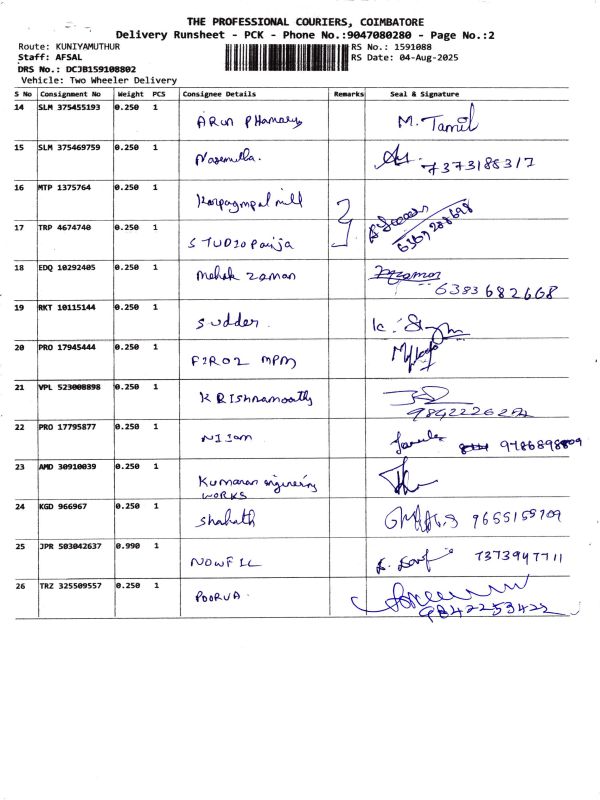 THE PROFESSIONAL COURIERS, COIMBATORE
Delivery Runsheet - PCK - Phone No.:9047080280 - Page No.:2
Route: KUNIYAMUTHUR RS No.: 1591088
Staff: AFSAL RS Date: 04-Aug-2025
DRS No.: DCJB159108802
Vehicle: Two Wheeler Delivery
S No Consignment No Weight PCS Consignee Details Remarks Seal & Signature
14 SLM 375455193 0.250 1 M. Tamil
ARUN PHamacy
15 SLM 375469759 0.250 1
Naseemulla. 7373188317
16 MTP 1375764 0.250 1
Karpagmpal mill
17 TRP 4674740 0.250 1
STUDIO Panja
18 EDQ 10292405 0.250 1
Mehak zaman
6383682668
19 RKT 10115144 0.250 1
Sudder.
20 PRO 17945444 0.250 1
FIROZ MPM
21 VPL 523008898 0.250 1
KRIshnamoorthy
22 PRO 17795877 0.250 1
Nijam 9786898809
23 AMD 30910039 0.250 1
Kumaran engineering
WORKS
24 KGD 966967 0.250 1
Shahath 9655155709
25 JPR 503042637 0.990 1
NOWFIL 7373947711
26 TRZ 325509557 0.250 1
POORVA
9842253422